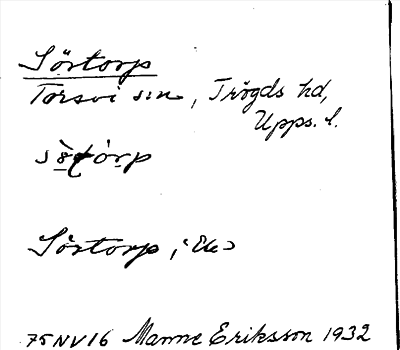 Sörtorp
Torsvi sn, Trögds hd,
Upps. l.
Sörtorp,
75NV16 Manne Eriksson 1932